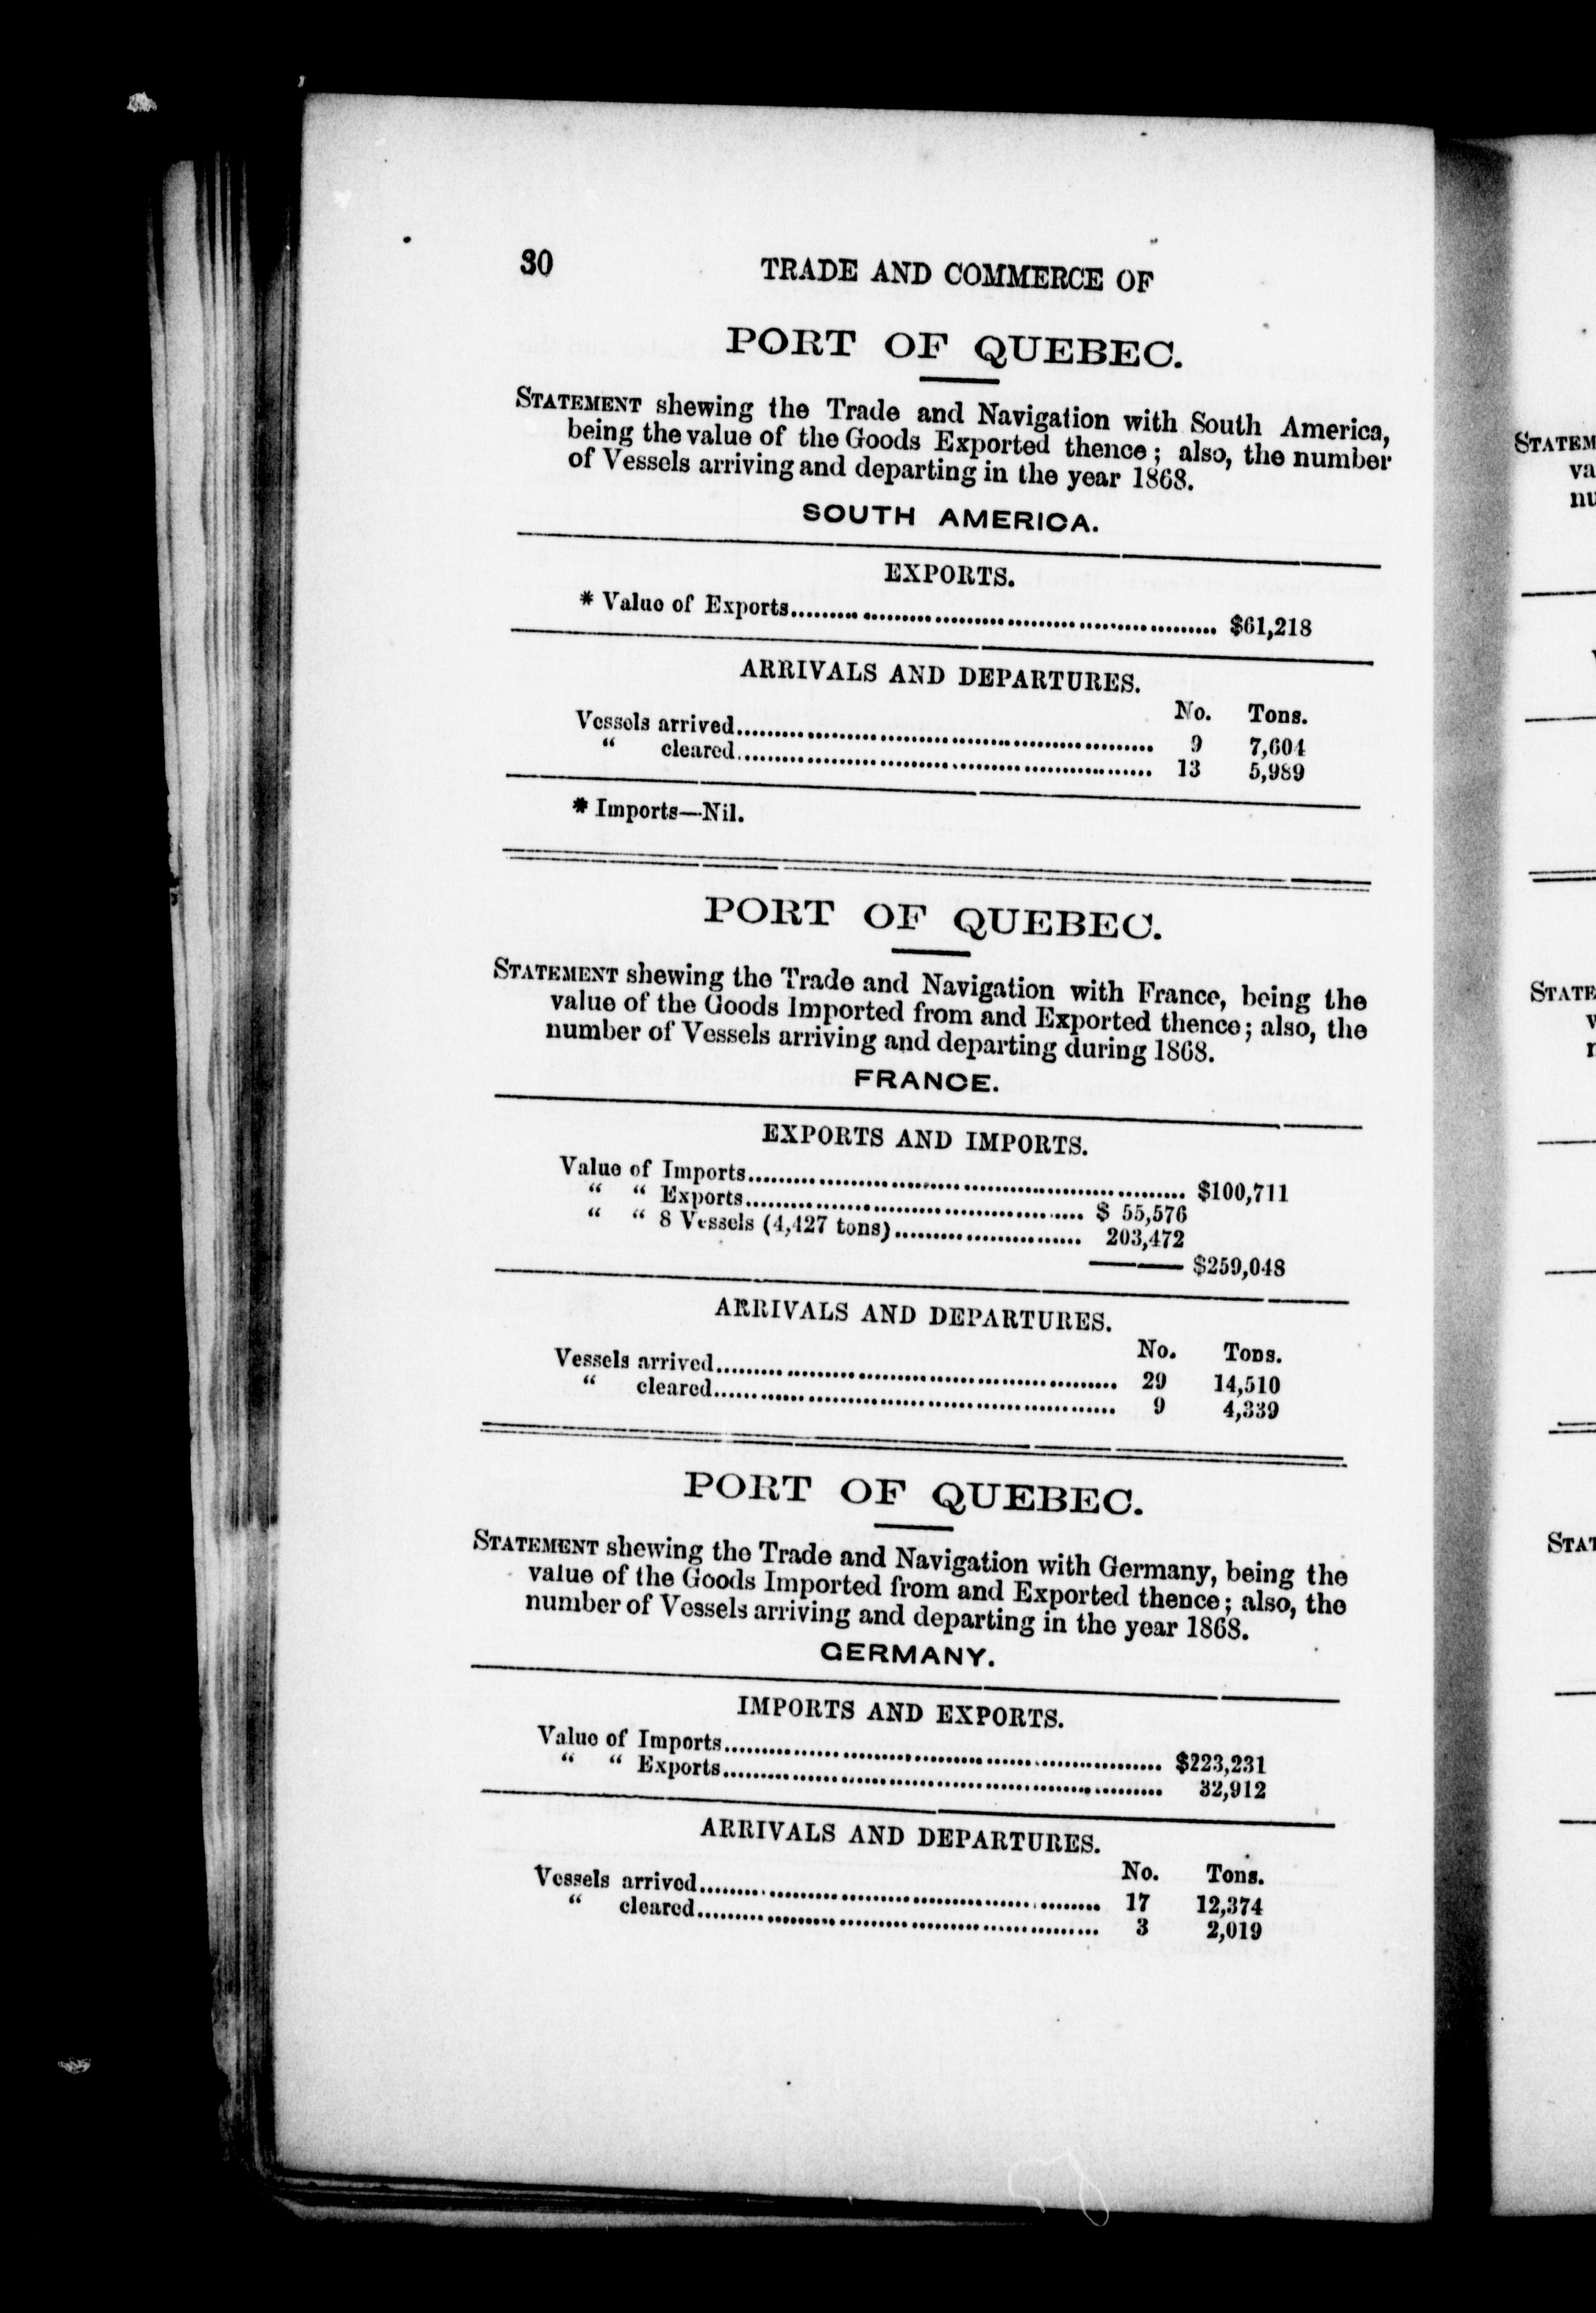 30 TRADE AND COMMERCE OF
PORT OF QUEBEC.
STATEMENT shewing the Trade and Navigation with South America,
being the value of the Goods Exported thence; also, the number
of Vessels arriving and departing in the year 1868.
SOUTH AMERICA.
EXPORTS.
* Value of Exports........................................ $61,218
ARRIVALS AND DEPARTURES.
No. Tons.
Vessels arrived........................................ 9 7,604
“ cleared........................................ 13 5,989
* Imports—Nil.
PORT OF QUEBEC.
STATEMENT shewing the Trade and Navigation with France, being the
value of the Goods Imported from and Exported thence; also, the
number of Vessels arriving and departing during 1868.
FRANCE.
EXPORTS AND IMPORTS.
Value of Imports........................................ $100,711
“ “ Exports........................................ $ 55,576
“ “ 8 Vessels (4,427 tons)........................ 203,472
——— $259,048
ARRIVALS AND DEPARTURES.
No. Tons.
Vessels arrived........................................ 29 14,510
“ cleared........................................ 9 4,339
PORT OF QUEBEC.
STATEMENT shewing the Trade and Navigation with Germany, being the
value of the Goods Imported from and Exported thence; also, the
number of Vessels arriving and departing in the year 1868.
GERMANY.
IMPORTS AND EXPORTS.
Value of Imports........................................ $223,231
“ “ Exports........................................ 32,912
ARRIVALS AND DEPARTURES.
No. Tons.
Vessels arrived........................................ 17 12,374
“ cleared........................................ 3 2,019
STATEM
va
nu
STATE
STAT